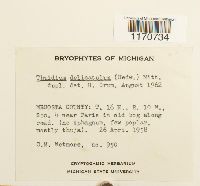 1170734
BRYOPHYTES OF MICHIGAN
Thuidium delicatulum (Hedw.) Mitt.
det. H. Crum, August 1962
MECOSTA COUNTY: T. 16 N., R. 10 W.,
Sec. 8 near Paris in old bog along
road. (no sphagnum, few poplar,
mostly thuja). 26 April 1958
C.M. Wetmore, no. 950
CRYPTOGAMIC HERBARIUM
MICHIGAN STATE UNIVERSITY